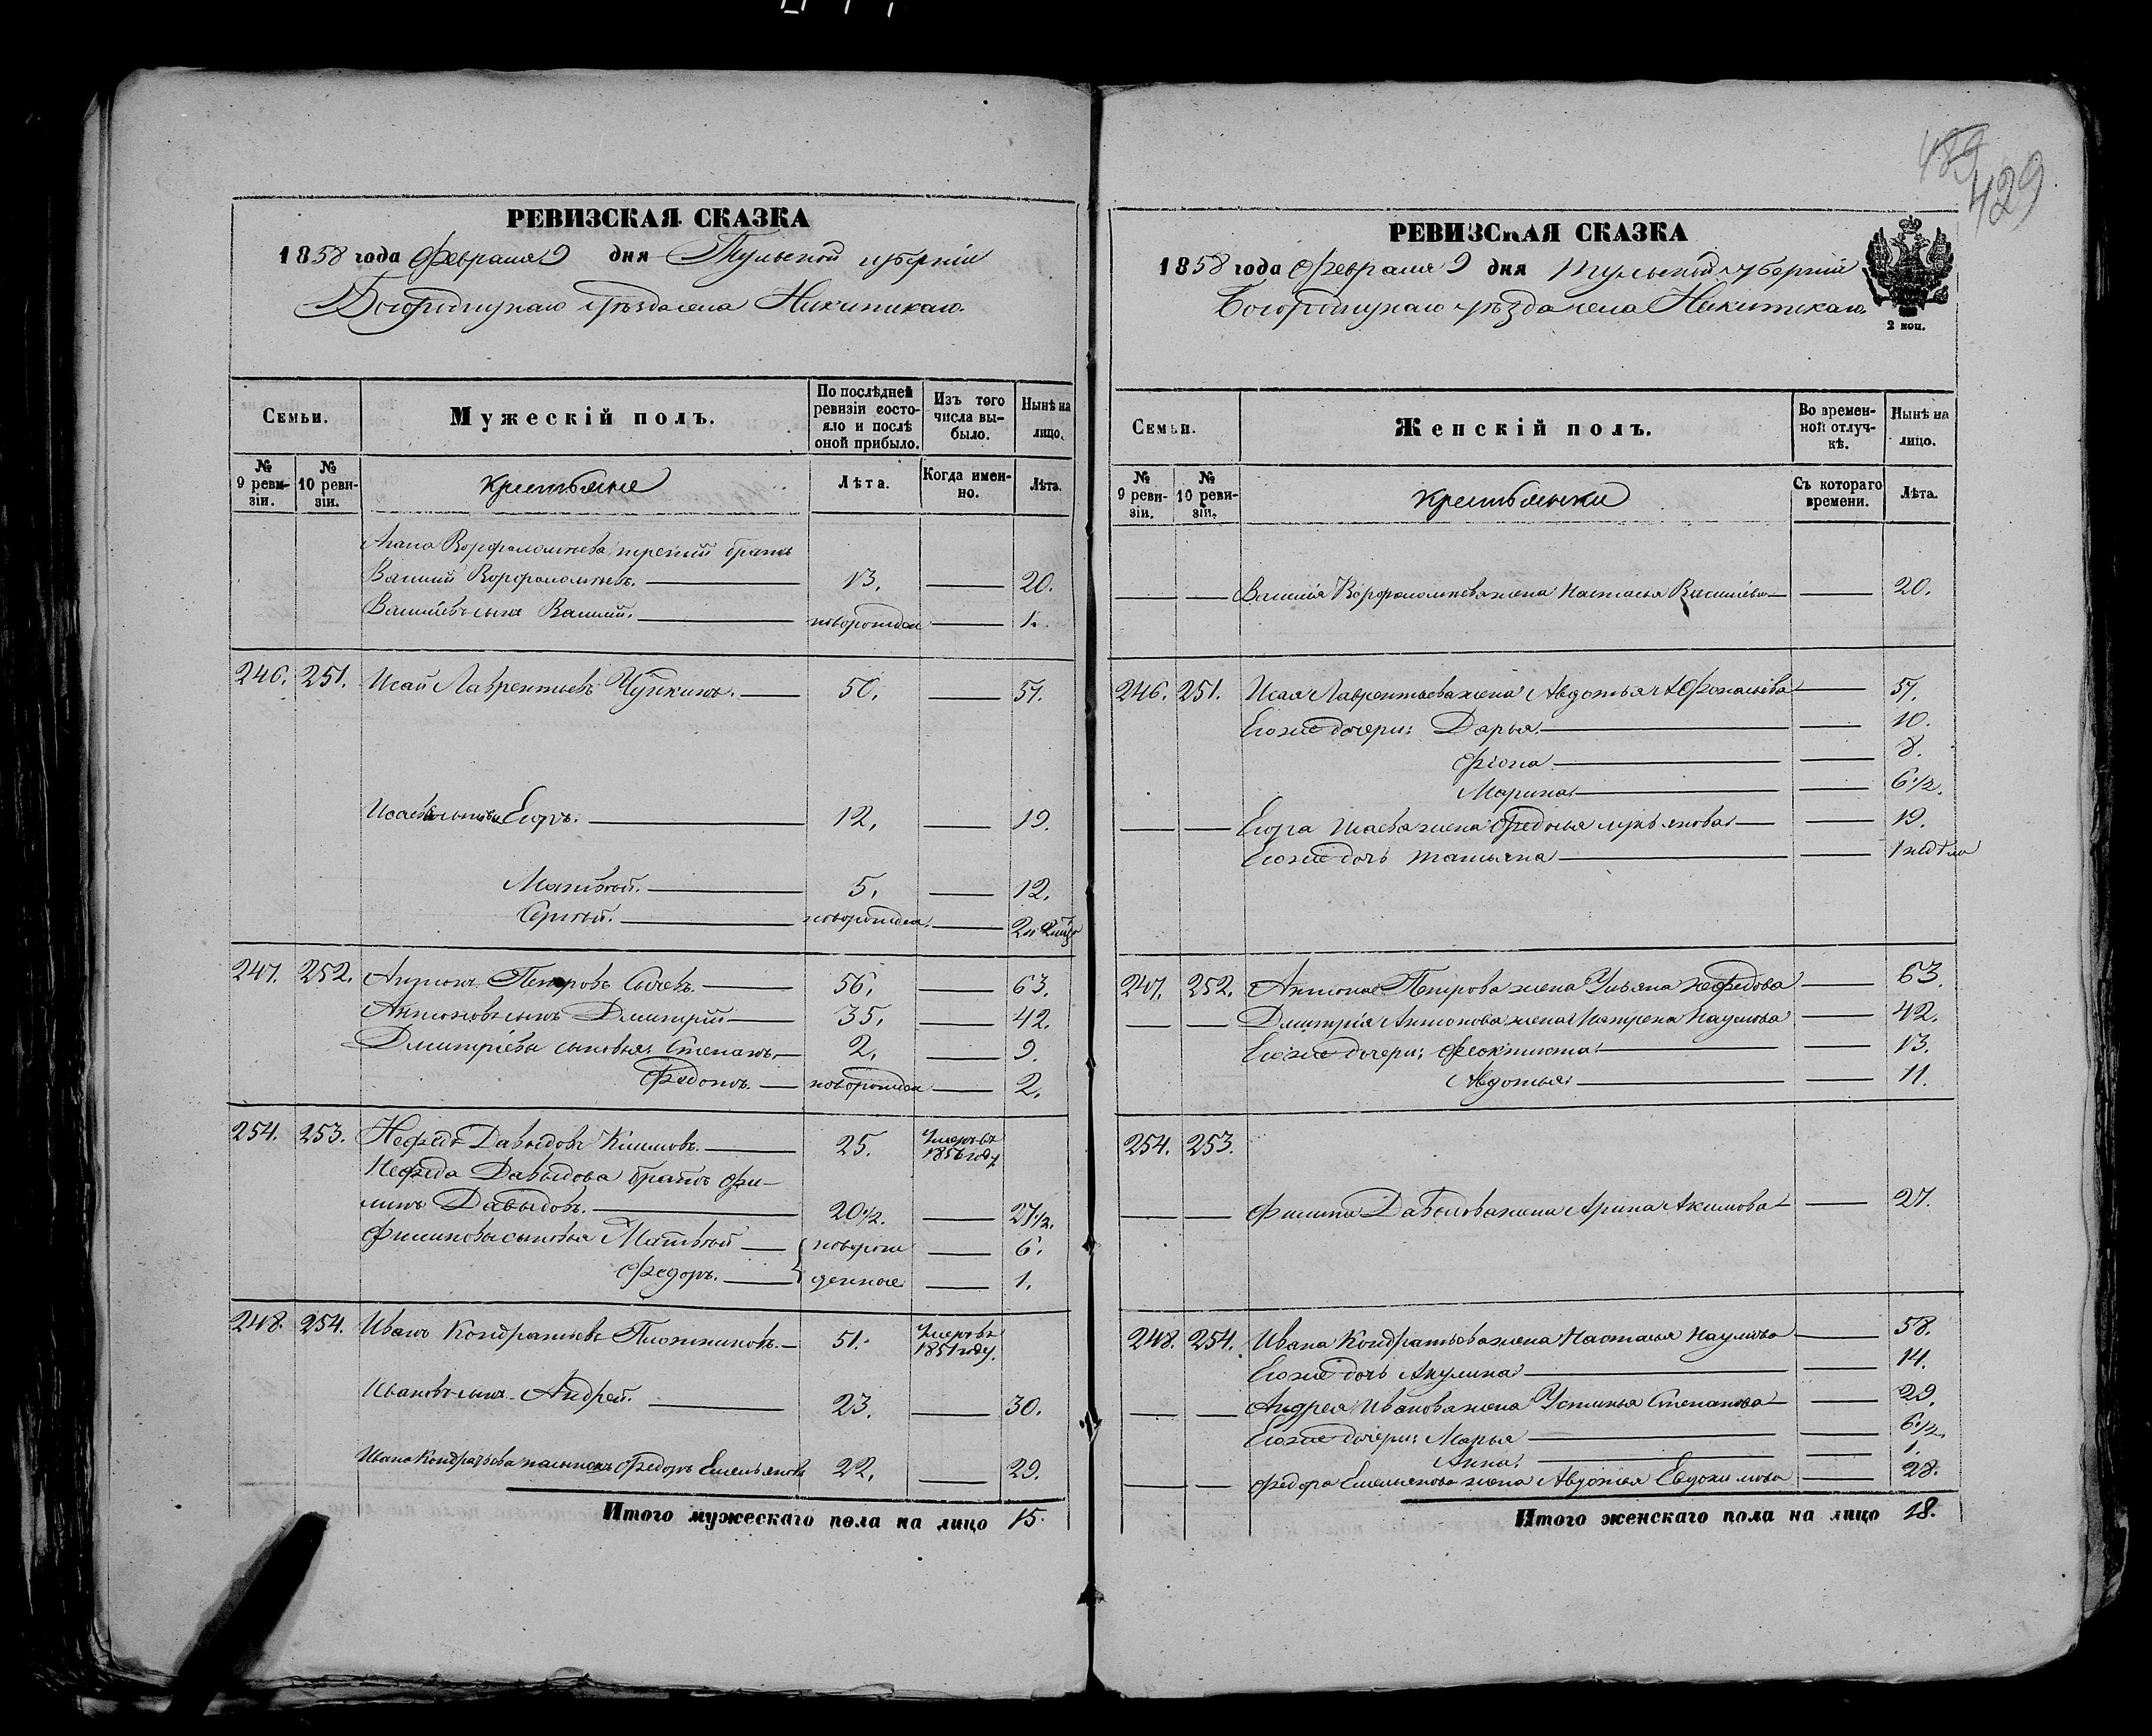 489
429
РЕВИЗСКАЯ СКАЗКА
1858 года Февраля 9 дня Тульской губерніи
Богородицкаго уѣзда села Никитскаго.
Семьи.
Мужескій полъ.
По послѣдней ревизіи состояло и послѣ оной прибыло.
Изъ того числа выбыло.
Нынѣ на лицо.
№ 9 ревизіи.
№ 10 ревизіи.
Крестьяне
Лѣта.
Когда именно.
Лѣта.
Варфоломѣева третій братъ
Василій Варфоломѣевъ. 13. 20.
Васильевъ сынъ Василій. новорожден 1.
246. 251. Исай Лаврентьевъ 50. 57.
Исаевы сыновья Егоръ. 12. 19.
Матвѣй. 5. 12.
Сергѣй. новорожден.
247. 252. Антонъ Петровъ Сычевъ. 56. 63.
Антоновъ сынъ Дмитрій 35. 42.
Дмитріевы сыновья: Степанъ. 2. 9.
Федотъ. новорожден 2.
254. 253. Нефедъ Давыдовъ Климовъ. 25. Умеръ въ 1856 году
Нефеда Давыдова братъ Фи-
липъ Давыдовъ. 20 1/2. 27 1/2.
Филиповы сыновья Матвѣй новорож 6.
Федоръ. денные 1.
248. 254. Иванъ Кондратьевъ Плотниковъ. 51. Умеръ въ 1851 году.
Ивановъ сынъ Андрей. 23. 30.
Ивана Кондратьева пасынокъ Федоръ Емельяновъ 22. 29.
Итого мужескаго пола на лицо 15.
РЕВИЗСКАЯ СКАЗКА
1858 года Февраля 9 дня Тульской губерніи
Богородицкаго уѣзда села Никитскаго.
2 коп.
Семьи.
Женскій полъ.
Во временной отлучкѣ.
Нынѣ на лицо.
№ 9 ревизіи.
№ 10 ревизіи.
Крестьянки
Съ котораго времени.
Лѣта.
Василія Варфоломѣева жена Настасья Васильева 20.
246. 251. Исая Лаврентьева жена Авдотья Афонасьева 57.
Его же дочери: Дарья. 10.
Фіона 8.
Марина 6 1/2.
Егора Исаева жена Федосья Лукьянова 19.
Его же дочь Татьяна 1 недѣли
247. 252. Антона Петрова жена Ульяна Нефедова 63.
Дмитрія Антонова жена Матрена Наумова 42.
Его же дочери: Феоктиста 13.
Авдотья 11.
254. 253.
Филипа Давыдова жена Арина Акимова 27.
248. 254. Ивана Кондратьева жена Настасья Наумова 58.
Его же дочь Акулина 14.
Андрея Иванова жена Устинья Степанова 29.
Его же дочери: Марья 6 1/2.
Анна. 1.
Федора Емельянова жена Авдотья Евдокимова 28.
Итого женскаго пола на лицо 18.